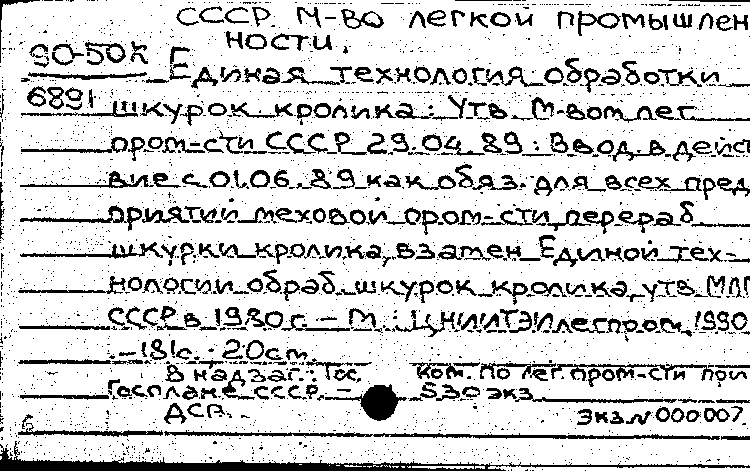 СССР. М-во легкой промышлен
ности.
90-50к
Единая технология обработки
6891 шкурок кролика: Утв. М-вом лег.
пром-сти СССР 29.04.89: Ввод. в дейст
вие с 01.06.89 как обяз. для всех пред
приятий меховой пром-сти, перераб.
шкурки кролика, взамен Единой тех-
нологии обраб. шкурок кролика, утв. МЛП
СССР в 1980 г. – М.: ЦНИИТЭИлегпром, 1990
. – 181с.; 20см.
В надзаг.: Гос. ком. по лег. пром-сти при
Госплане СССР. – 530 экз.
ДСП.
Экз. N 000007